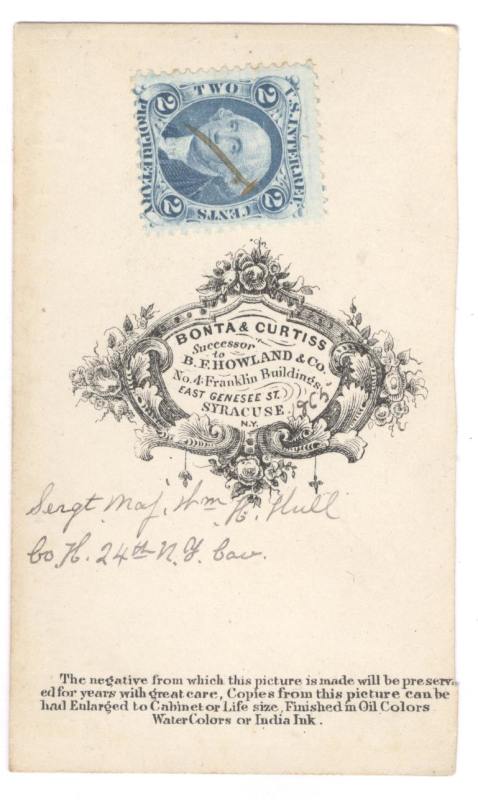 U.S. INTER. REV.
TWO
2
2
PROPRIETARY
CENTS
2
2
BONTA & CURTISS
Successor
to
B.F. HOWLAND & Co.
No. 4 Franklin Buildings,
EAST GENESEE ST.
SYRACUSE
N.Y.
Sergt Maj. Wm H. Hull
Co. H. 24th N.Y. Cav.
The negative from which this picture is made will be preserv-
ed for years with great care, Copies from this picture can be
had Enlarged to Cabinet or Life size, Finished in Oil Colors
Water Colors or India Ink.